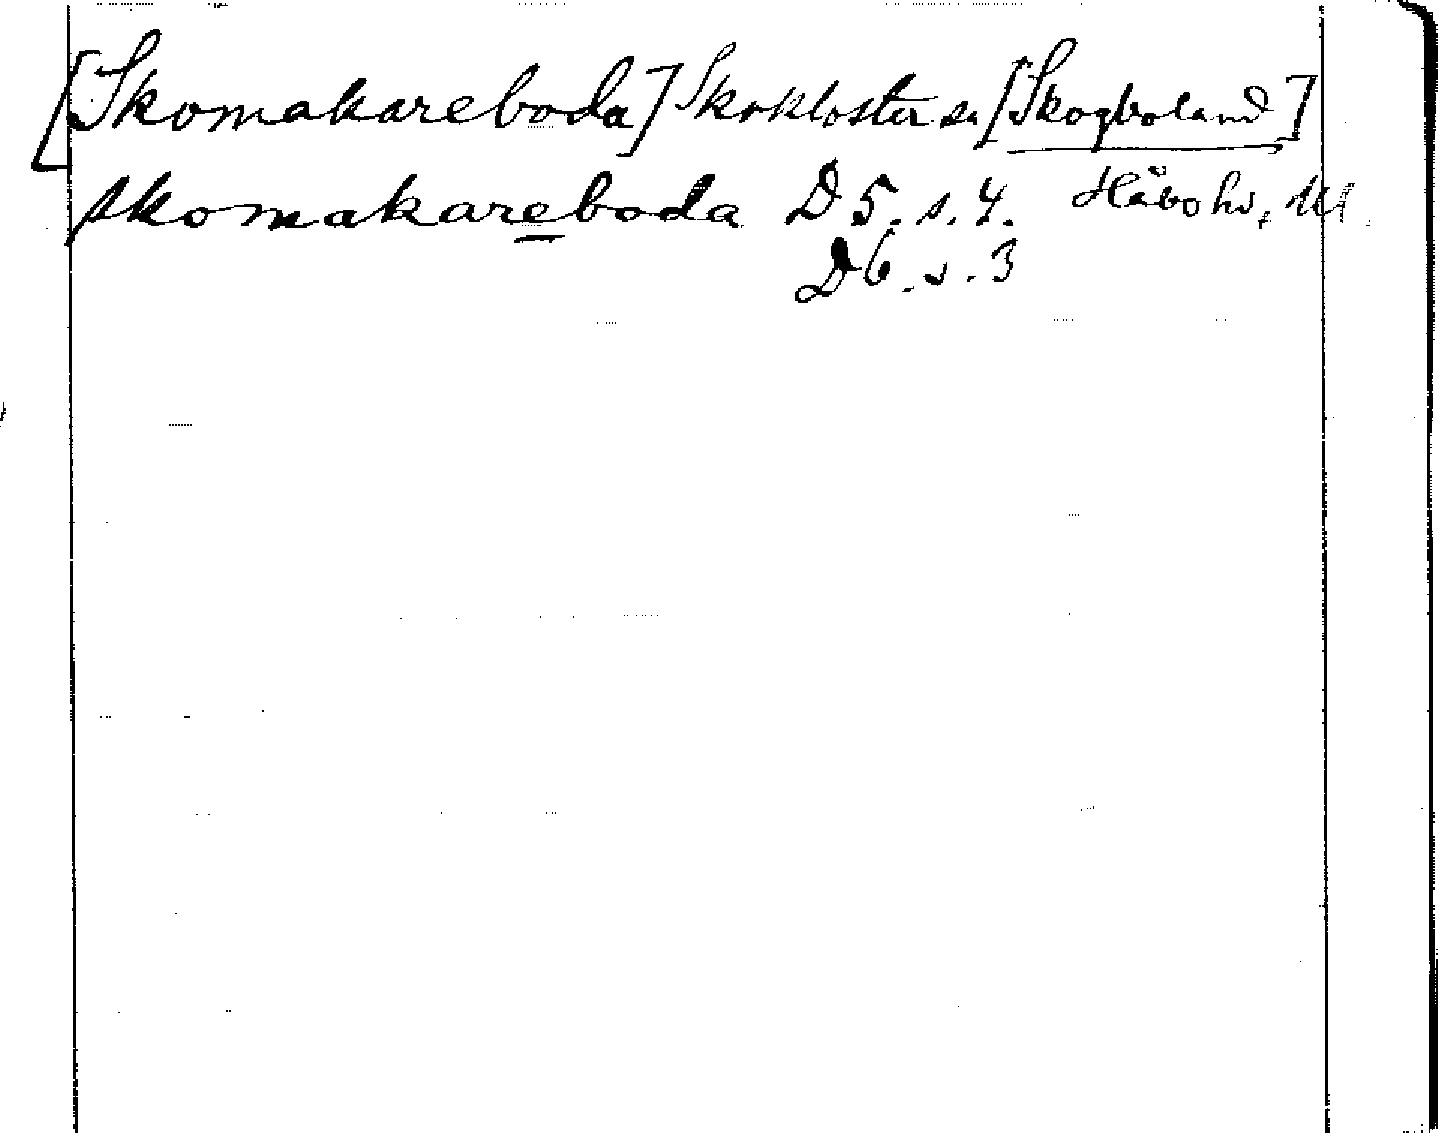 [Skomakareboda] Skokloster sn [Skogboland]
skomakareboda D 5. s. 4. Håbo hd, Ul.
D 6. s. 3